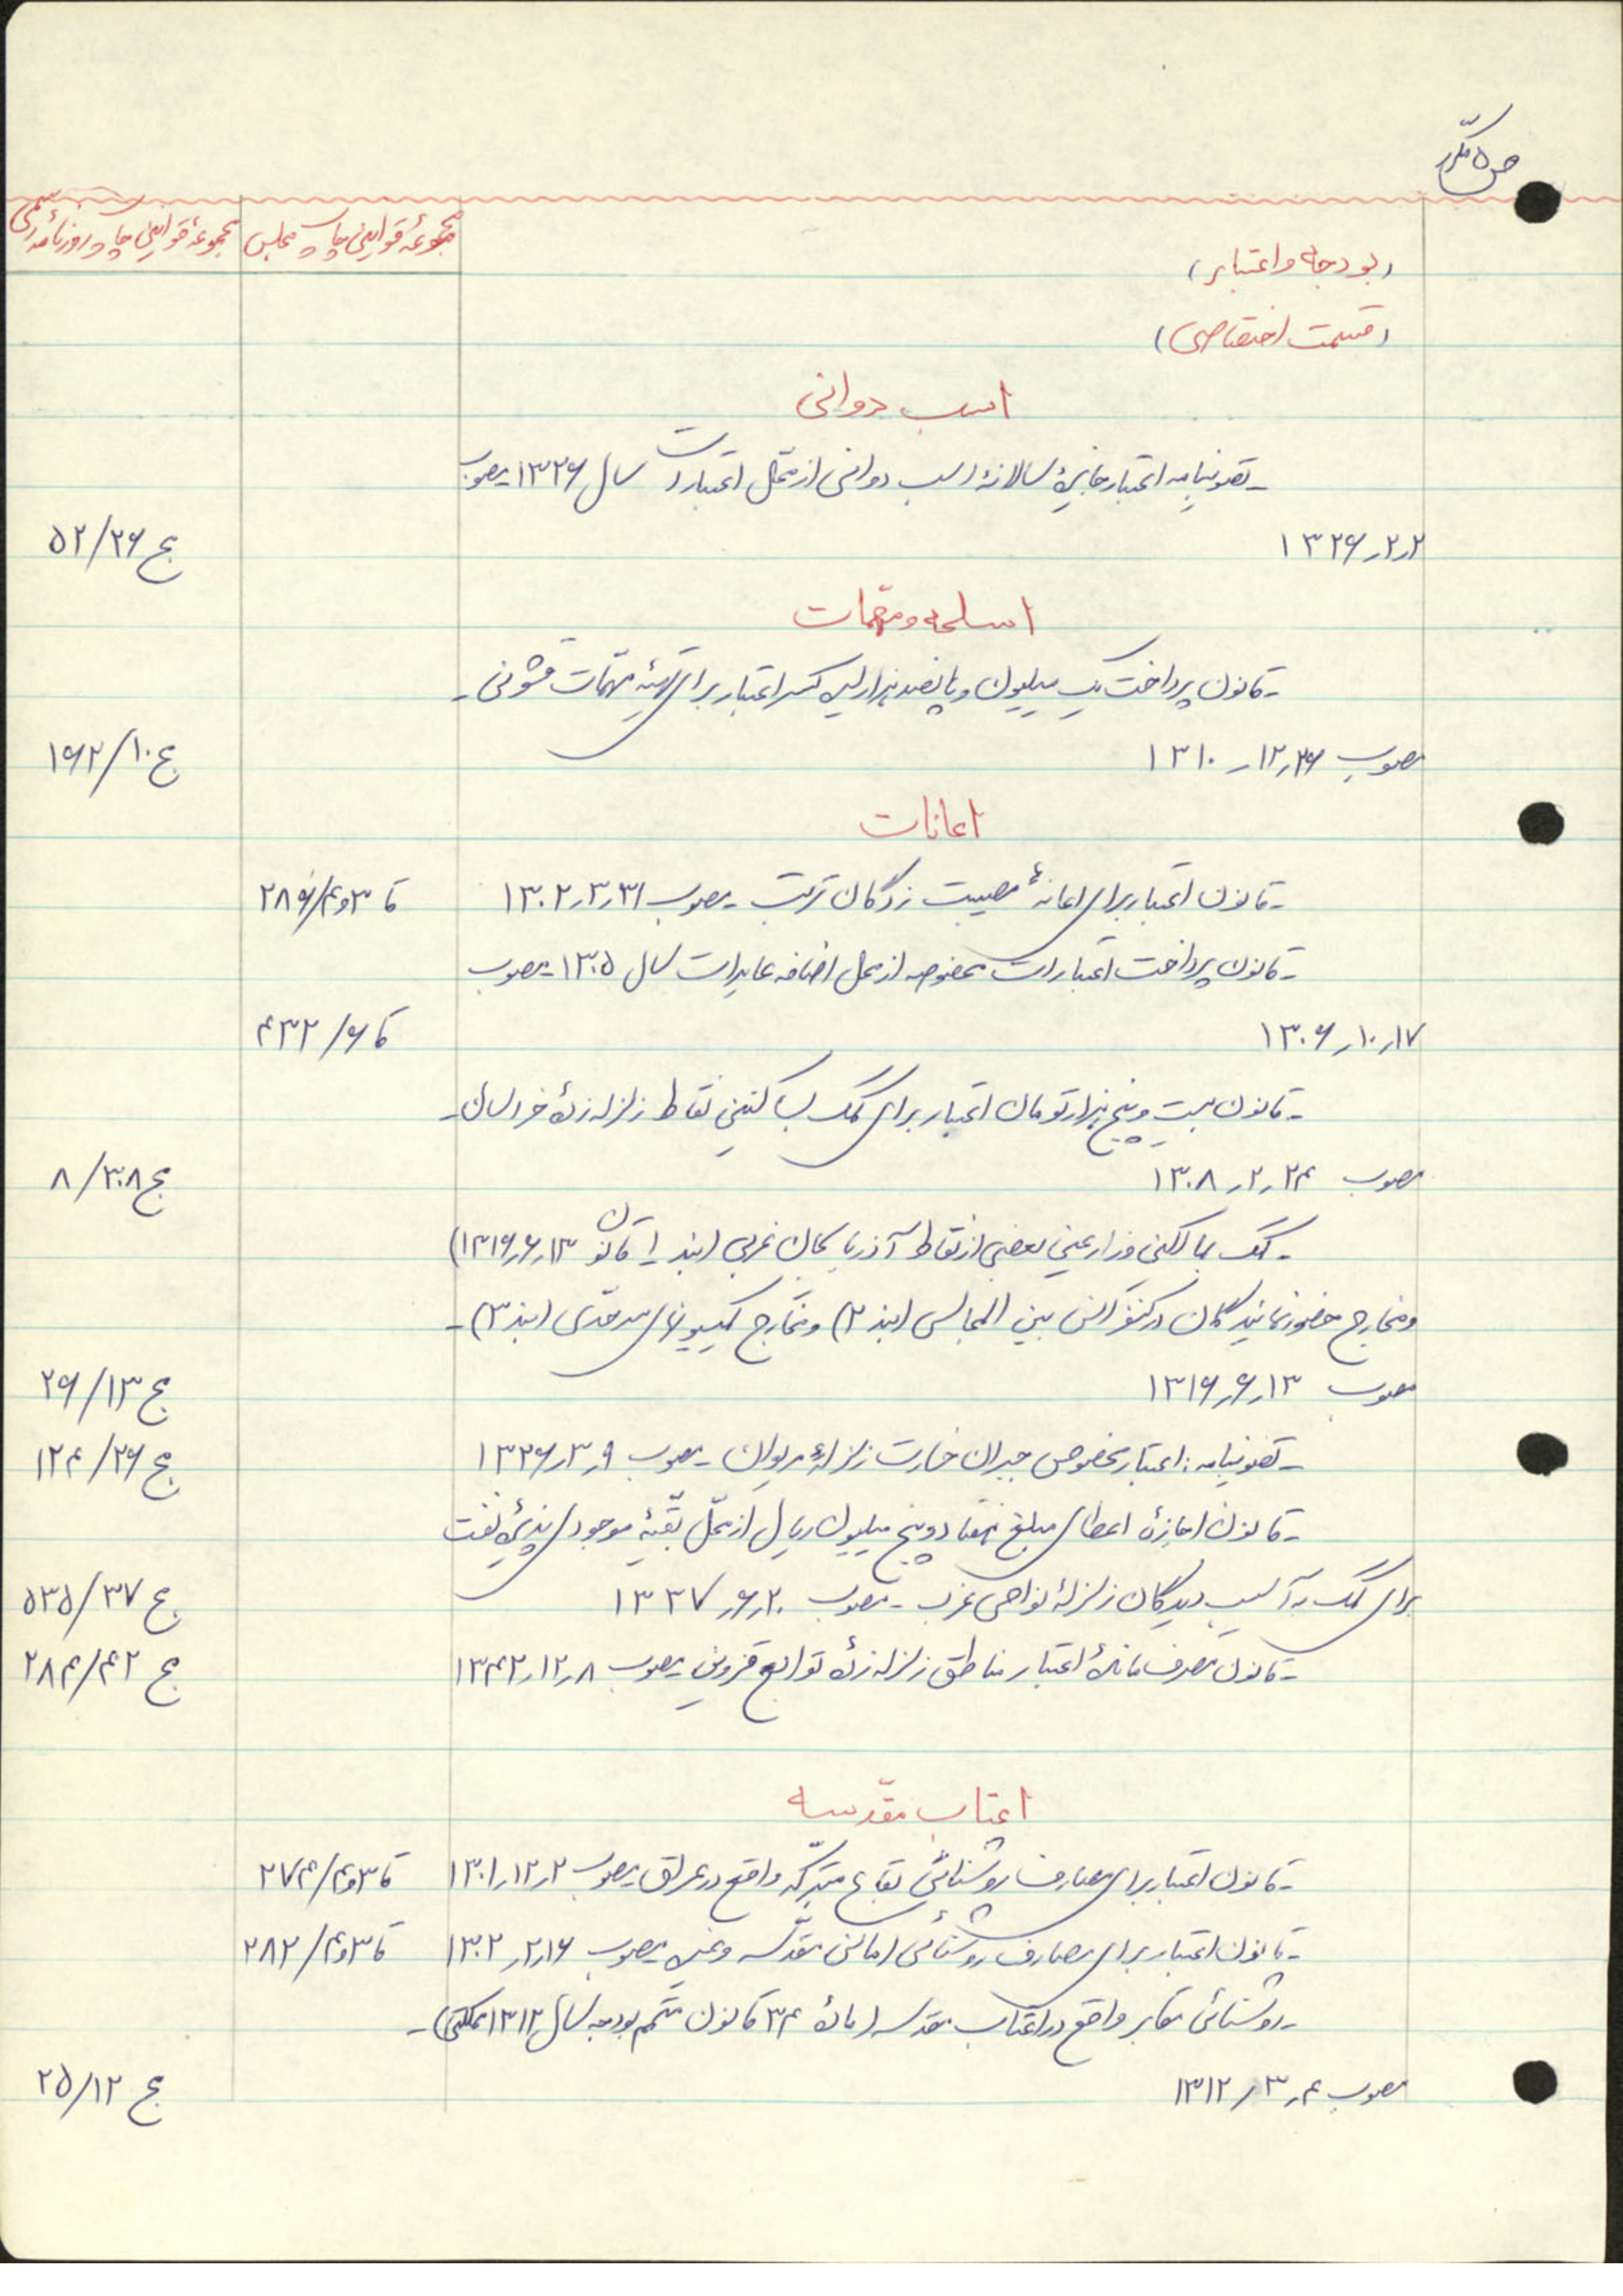 ص ۵ مکرر
مجموعهٔ قوانین چاپ مجلس
مجموعهٔ قوانین چاپ روزنامه رسمی
(بودجه و اعتبار)
(قسمت اختصاصی)
اسب دوانی
- تصویبنامه اعتبار جایزهٔ سالانهٔ اسب دوانی از محّل اعتبارات سال ۱۳۲۶ - مصوب
۱۳۲۶٫۲٫۲ ج ۵۲/۲۶
اسلحه و مهّمات
- قانون پرداخت یک میلیون و پانصد هزار لیره کسر اعتبار برای تهیّهٔ مهّمات قشونی -
مصوب ۱۳۱۰٫۱۲٫۲۶ ج ۱۶۲/۱۰
اعانات
- قانون اعتبار برای اعانهٔ مصیبت زدگان تربت - مصوب ۱۳۰۲٫۳٫۳۱ قا ۳و۴/۲۸۹
- قانون پرداخت اعتبارات مخصوصه از محل اضافه عایدات سال ۱۳۰۵ - مصوب
۱۳۰۶٫۱۰٫۱۷ قا ۶/۴۳۲
- قانون بیست و پنج هزار تومان اعتبار برای کمک بساکنین نقاط زلزله زدهٔ خراسان -
مصوب ۱۳۰۸٫۲٫۲۴ ج ۸/۳۰۸
- کمک بمالکین و زارعین بعضی از نقاط آذربایجان غربی (بند ۱ قانون ۱۳۱۶٫۶٫۱۳)
و مخارج حضور نمایندگان در کنفرانس بین المجالس (بند ۲) و مخارج کمیسیونهای سرحدّی (بند ۳) -
مصوب ۱۳۱۶٫۶٫۱۳ ج ۲۶/۱۳
- تصویبنامه: اعتبار مخصوص جبران خسارت زلزلهٔ مریوان - مصوب ۱۳۲۶٫۳٫۹ ج ۱۲۴/۲۶
- قانون اجازهٔ اعطای مبلغ هفتاد و پنج میلیون ریال از محّل بقّیهٔ موجودی پذیرهٔ نفت
برای کمک به آسیب دیدگان زلزلهٔ نواحی غرب - مصوب ۱۳۳۷٫۶٫۲۰ ج ۵۳۵/۳۷
- قانون مصرف ماندهٔ اعتبار مناطق زلزله زدهٔ توابع قزوین - مصوب ۱۳۴۲٫۱۲٫۸ ج ۲۸۴/۴۲
اعتاب مقّدسه
- قانون اعتبار برای مصارف روشنائی بقاع متبرّکه واقع در عراق - مصوب ۱۳۰۱٫۱۲٫۲ قا ۳و۴/۲۷۴
- قانون اعتبار برای مصارف روشنائی اماکن مقّدسه و غیره - مصوب ۱۳۰۲٫۲٫۱۶ قا ۳و۴/۲۸۲
- روشنائی مقابر واقع در اعتاب مقدسه (مادهٔ ۳۴ قانون متّمم بودجه سال ۱۳۱۲ مملکتی) -
مصوب ۱۳۱۲٫۳٫۴ ج ۲۵/۱۲